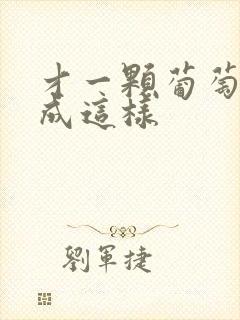 才一顆葡萄
成這樣
劉軍捷